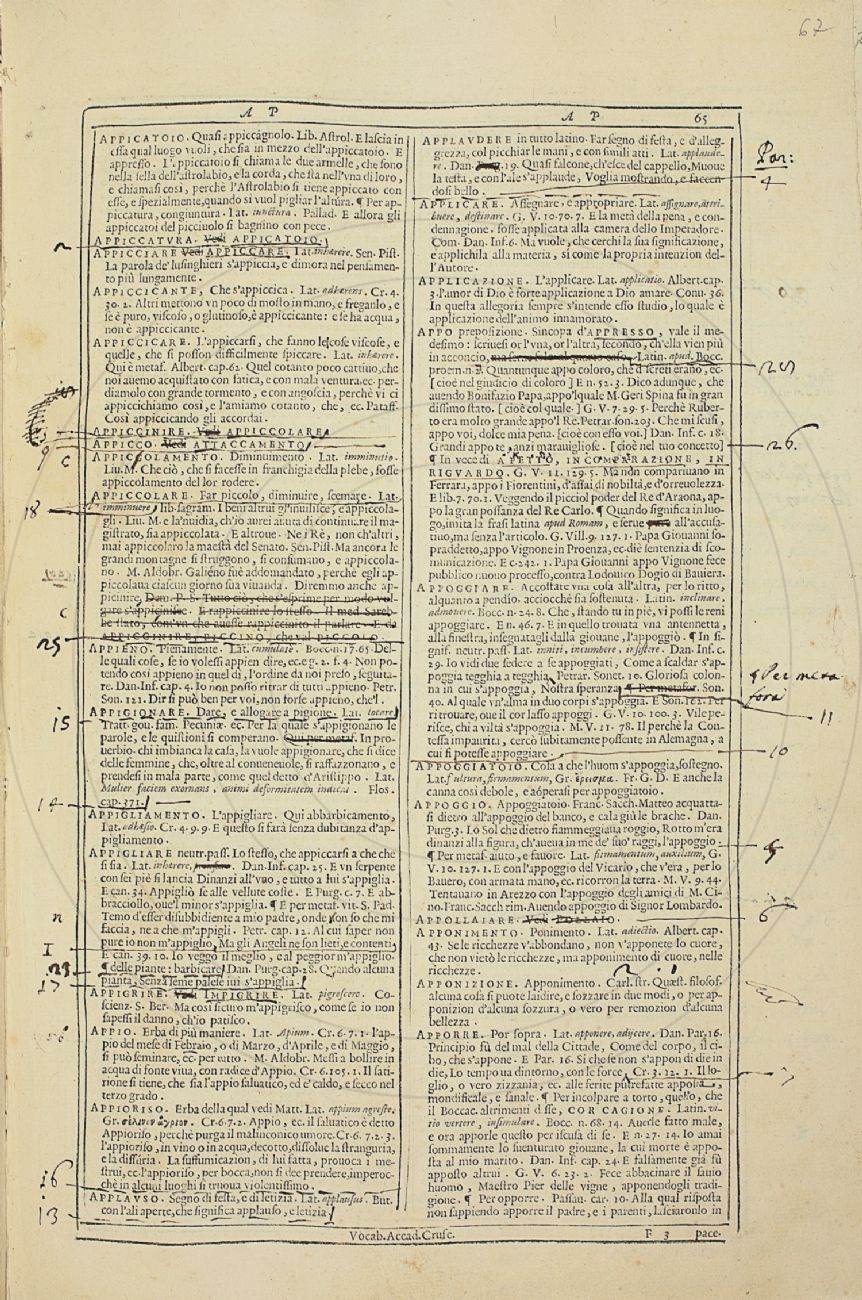 67
A P
APPICATOIO. Quasi appiccagnolo. Lib. Astrol. E lascia in
essa qual luogo vuoli, che sia in mezzo dell'appiccatoio. E
appresso. L'appiccatoio si chiama le due armelle, che sono
nella sella dell'astrolabio, e la corda, che sta nell'vna di loro,
e chiamasi così, perchè l'Astrolabio si tiene appiccato con
esse, e spezialmente, quando si vuol pigliar l'altura. ¶ Per ap-
piccatura, congiuntura. Lat. iunctura. Pallad. E allora gli
appiccatoi del picciuolo si bagnino con pece.
APPICCATVRA. Vedi APPICATOIO.
APPICCIARE Vedi APPICCARE. Lat. inhærere. Sen. Pist.
La parola de' lusinghieri s'appiccia, e dimora nel pensamen-
to più lungamente.
APPICCICANTE, Che s'appiccica. Lat. adhærens. Cr. 4.
30. 2. Altri mettono vn poco di mosto in mano, e freganlo, e
se è puro, viscoso, o glutinoso, è appiccicante: e se ha acqua,
non è appiccicante.
APPICCICARE. L'appiccarsi, che fanno le cose viscose, e
quelle, che si posson difficilmente spiccare. Lat. inhærere.
Qui è metaf. Albert. cap. 62. Quel cotanto poco cattiuo, che
noi auemo acquistato con fatica, e con mala ventura, ec. per-
diamolo con grande tormento, e con angoscia, perchè vi ci
appiccichiamo così, e l'amiamo cotanto, che, ec. Pataff.
Così appiccicando gli accordai.
APPICCINIRE. Vedi APPICCOLARE
APPICCO. Vedi ATTACCAMENTO
APPICCOLAMENTO. Diminuimento. Lat. imminutio.
Liu. M. Che ciò, che si facesse in franchigia della plebe, fosse
appiccolamento del lor rodere.
APPICCOLARE. Far piccolo, diminuire, scemare. Lat.
imminuere, lib. sagram. I beni altrui gl'inuilisce, e appiccola-
gli. Liu. M. e la'nuidia, ch'io aurei aiuta di continuare il ma-
gistrato, sia appiccolata. E altroue. Ne i Rè, non ch'altri,
mai appiccolaro la maestà del Senato. Sen. Pist. Ma ancora le
grandi montagne si struggono, si consumano, e appiccola-
no. M. Aldobr. Galieno fue addomandato, perchè egli ap-
piccolaua ciascun giorno sua viuanda. Diremmo anche ap-
picinire, Dan. P. 5. Tutto ciò, che s'esprime per modo vol-
gare s'appicinisce. E rappiccinire lo stesso. Il med. Sareb-
be stato, com'vn che auesse rappiccinito il parlare. E da
APPICCINIRE, PICCINO, che val PICCOLO.
APPIENO. Pienamente. Lat. cumulatè. Bocc. n. 17. 65. Del-
le quali cose, se io volessi appien dire, ec. e g. 2. f. 4. Non po-
tendo così appieno in quel dì, l'ordine da noi preso, seguita-
re. Dan. Inf. cap. 4. Io non posso ritrar di tutti appieno. Petr.
Son. 121. Dir si può ben per voi, non forse appieno, che'l.
APPIGIONARE. Dare, e allogare a pigione. Lat. locare.
Tratt. gou. fam. Pecunia, ec. Per la quale s'appigionano le
parole, e le quistioni si comperano. Qui per metaf. In pro-
uerbio. chi imbianca la casa, la vuole appigionare, che si dice
delle femmine, che, oltre al conueneuole, si raffazzonano, e
prendesi in mala parte, come quel detto d'Aristippo. Lat.
Mulier faciem exornans, animi deformitatem indicat. Flos.
cap. 371.
APPIGLIAMENTO. L'appigliare. Qui abbarbicamento,
Lat. adhæsio. Cr. 4. 9. 9. E questo si farà senza dubitanza d'ap-
pigliamento.
APPIGLIARE neutr. pass. Lo stesso, che appiccarsi a che che
si sia. Lat. inhærere, Dan. Inf. cap. 25. E vn serpente
con sei piè si lancia Dinanzi all'vuo, e tutto a lui s'appiglia.
E can. 34. Appigliò sè alle vellute coste. E Purg. c. 7. E ab-
bracciollo, oue'l minor s'appiglia. ¶ E per metaf. vit. S. Pad.
Temo d'esser disubbidiente a mio padre, onde non so che mi
faccia, ne a che m'appigli. Petr. cap. 12. Al cui saper non
pure io non m'appiglio, Ma gli Angeli ne son lieti, e contenti,
E can. 39. 10. Io veggo il meglio, e al peggior m'appiglio.
¶ delle piante: barbicare. Dan. Purg. cap. 28. Quando alcuna
pianta, Senza seme palese iui s'appiglia.
APPIGRIRE. Vedi IMPIGRIRE. Lat. pigrescere. Co-
scienz. S. Ber. Ma così sicuro m'appigrisco, come se io non
sapessi il danno, ch'io patisco.
APPIO. Erba di più maniere. Lat. Apium. Cr. 6. 7. 1. l'ap-
pio del mese di Febraio, o di Marzo, d'Aprile, e di Maggio,
si può seminare, ec. per tutto. M. Aldobr. Messi a bollire in
acqua di fonte viua, con radice d'Appio. Cr. 6. 105. 1. Il sati-
rione si tiene, che sia l'appio saluatico, ed e' caldo, e secco nel
terzo grado.
APPIORISO. Erba della qual vedi Matt. Lat. appium agreste.
Gr. σέλινον ἄγριον. Cr. 6. 7. 2. Appio, ec. il saluatico è detto
Appioriso, perchè purga il malinconico umore. Cr. 6. 7. 2. 3.
l'appioriso, in vino o in acqua, decotto, dissolue la stranguria,
e la dissuria. La suffumicazion, di lui fatta, prouoca i me-
strui, ec. l'appioriso, per bocca, non si dee prendere, imperoc-
chè in alcuni luoghi si truoua violentissimo.
APPLAVSO. Segno di festa, e di letizia. Lat. applausus. But.
con l'ali aperte, che significa applauso, e letizia
18
25
15
14
n
I
23
17
16
13
A P 65
APPLAVDERE in tutto latino. Far segno di festa, e d'alleg-
grezza, col picchiar le mani, e con simili atti. Lat. applaude-
re. Dan. 19. Quasi falcone, ch'esce del cappello, Muoue
la testa, e con l'ale s'applaude, Voglia mostrando, e faccen-
dosi bello.
APPLICARE. Assegnare, e appropriare. Lat. assignare, attri-
buere, destinare. G. V. 10. 70. 7. E la metà della pena, e con-
dennagione, fosse applicata alla camera dello Imperadore.
Com. Dan. Inf. 6. Ma vuole, che cerchi la sua significazione,
e applichila alla materia, sì come la propria intenzion del-
l'Autore.
APPLICAZIONE. L'applicare. Lat. applicatio. Albert. cap.
3. l'amor di Dio è forte applicazione a Dio amare. Conu. 36.
In questa allegoria sempre s'intende esso studio, lo quale è
applicazione dell'animo innamorato.
APPO preposizione. Sincopa d'APPRESSO, vale il me-
desimo: scriuesi or l'vna, or l'altra, secondo, ch'ella vien più
in acconcio, Latin. apud. Bocc.
proem. n. 8. Quantunque appo coloro, che discreti erano, ec.
[cioè nel giudicio di coloro] E n. 52. 3. Dico adunque, che
auendo Bonifazio Papa, appo'lquale M. Geri Spina fu in gran
dissimo stato. [cioè col quale.] G. V. 7. 29. 5. Perchè Ruber-
to era molto grande appo'l Re. Petrar. son. 203. Che mi scusi,
appo voi, dolce mia pena. [cioè con esso voi.] Dan. Inf. c. 18.
Grandi appo te, anzi marauigliose. [cioè nel tuo concetto]
¶ In vece di A PETTO, IN COMPARAZIONE, IN
RIGVARDO. G. V. 11. 129. 5. Ma non compariuano in
Ferrara, appo i Fiorentini, d'assai di nobiltà, e d'orreuolezza.
E lib. 7. 70. 1. Veggendo il picciol poder del Re d'Araona, ap-
po la gran possanza del Re Carlo. ¶ Quando significa in luo-
go, imita la frasi latina apud Romam, e serue all'accusa-
tiuo, ma senza l'articolo. G. Vill. 9. 127. 1. Papa Giouanni so-
praddetto, appo Vignone in Proenza, ec. diè sentenzia di sco-
municazione. E c. 242. 1. Papa Giouanni appo Vignone fece
pubblico nuouo processo, contra Lodouico Dogio di Bauiera.
APPOGGIARE. Accostare vna cosa all'altra, per lo ritto,
alquanto a pendio. acciocchè sia sostenuta. Latin. inclinare,
admouere. Bocc. n. 24. 8. Che, stando tu in piè, vi possi le reni
appoggiare. E n. 46. 7. E in quello trouata vna antennetta,
alla finestra, insegnatagli dalla giouane, l'appoggiò. ¶ In si-
gnif. neutr. pass. Lat. inniti, incumbere, insistere. Dan. Inf. c.
29. Io vidi due sedere a se appoggiati, Come a scaldar s'ap-
poggia tegghia a tegghia, Petrar. Sonet. 10. Gloriosa colon-
na in cui s'appoggia, Nostra speranza ¶ Per metafor. Son.
40. Al quale vn'alma in duo corpi s'appoggia. E Son. 161. Per
ritrouare, oue il cor lasso appoggi. G. V. 10. 100. 3. Vile pe-
risce, chi a viltà s'appoggia. M. V. 11. 78. Il perchè la Con-
tessa impaurita, cercò subitamente possente in Alemagna, a
cui si potesse appoggiare.
APPOGGIATOIO. Cosa a che l'huom s'appoggia, sostegno.
Lat. fultura, firmamentum, Gr. ἔρεισμα. Fr. G. D. E anche la
canna così debole, e adoperasi per appoggiatoio.
APPOGGIO. Appoggiatoio. Franc. Sacch. Matteo acquatta-
si dietro all'appoggio del banco, e cala giù le brache. Dan.
Purg. 3. Lo Sol che dietro fiammeggiaua roggio, Rotto m'era
dinanzi alla figura, ch'aueua in me de' suo' raggi, l'appoggio.
¶ Per metaf. aiuto, e fauore. Lat. firmamentum, auxilium, G.
V. 10. 127. 1. E con l'appoggio del Vicario, che v'era, per lo
Bauero, con armata mano, ec. ricorron la terra. M. V. 9. 44.
Tentauano in Arezzo con l'appoggio degli amici di M. Ci-
no. Franc. Sacch. rim. Auendo appoggio di Signor Lombardo.
APPOLLAIARE. Vedi POLLAIO.
APPONIMENTO. Ponimento. Lat. adiectio. Albert. cap.
43. Se le ricchezze v'abbondano, non v'apponete lo cuore,
che non vietò le ricchezze, ma apponimento di cuore, nelle
ricchezze.
APPONIZIONE. Apponimento. Carl. str. Quest. filosof.
alcuna cosa si puote laidire, e sozzare in due modi, o per ap-
ponizion d'alcuna sozzura, o vero per remozion d'alcuna
bellezza.
APPORRE. Por sopra. Lat. apponere, adijcere. Dan. Par. 16.
Principio fù del mal della Cittade, Come del corpo, il ci-
bo, che s'appone. E Par. 16. Sì che se non s'appon di die in
die, Lo tempo va dintorno, con le force, Cr. 3. 12. 1. Il lo-
glio, o vero zizzania, ec. alle ferite putrefatte apposta,
mondificale, e sanale. ¶ Per incolpare a torto, quello, che
il Boccac. altrimenti disse, COR CAGIONE. Latin. vi-
tio vertere, insimulare. Bocc. n. 68. 14. Auesse fatto male,
e ora apporle questo per iscusa di se. E n. 27. 14. Io amai
sommamente lo suenturato giouane, la cui morte è appo-
sta al mio marito. Dan. Inf. cap. 24. E falsamente già fù
apposto altrui. G. V. 6. 23. 2. Fece abbacinare il sauio
huomo, Maestro Pier delle vigne, apponendogli tradi-
gione. ¶ Per opporre. Passau. car. 10. Alla qual risposta
non sappiendo apporre il padre, e i parenti, lasciaronlo in
Par:
4
26.
¶ Per meta
fora
11
10
6
Vocab. Accad. Crusc. F 3 pace.